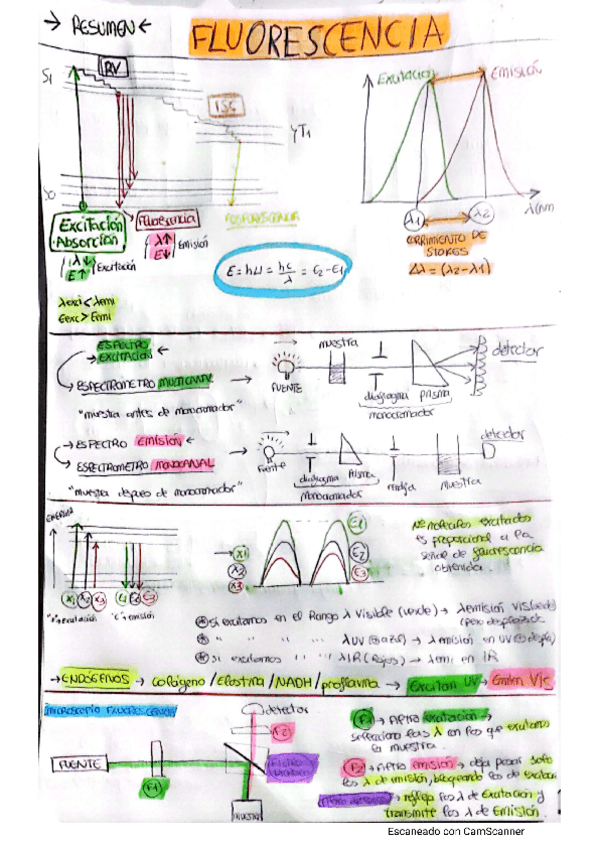 → RESUMEN ←
FLUORESCENCIA
S1
RV
ISC
T1
S0
Excitación
Absorción
Fluorescencia
FOSFORESCENCIA
λ↓
E↑
Excitación
λ↑
E↓
Emisión
λexci < λemi
Eexc > Eemi
E = hν = hc/λ = E2 - E1
Excitación
Emisión
λ(nm)
λ1
λ2
CORRIMIENTO DE
STOKES
Δλ = (λ2-λ1)
ESPECTRO
→ EXCITACIÓN ←
ESPECTROMETRO MULTICANAL →
"muestra antes de monocromador"
FUENTE
muestra
diafragma
prisma
monocromador
detector
→ ESPECTRO Emisión ←
→ ESPECTROMETRO MONOCANAL →
"muestra después de monocromador"
Fuente
diafragma
Prisma
Monocromador
muestra
detector
ENERGÍA
X1 X2 X3
E1 E2 E3
"x"=excitación
"E"=emisión
X1
X2
X3
E1
E2
E3
Nº moléculas excitadas
es proporcional a la
señal de fluorescencia
obtenida.
si excitamos en el Rango λ visible (verde) → λemisión visible
" " " " λUV → λ emisión en UV
si excitamos " " λIR (Rojos) → λemi en IR
→ ENDÓGENOS → Colágeno / Elastina / NADH / → Excitan UV → Emiten VIS
MICROSCOPIO FLUORESCENCIA
FUENTE
F1
F2
detector
F1 → Filtro excitación →
selecciona las λ en las que excitamos
la muestra.
F2 → Filtro emisión → deja pasar solo
las λ de emisión, bloqueando las de
→ refleja las λ de Excitación y
transmite las λ de Emisión.
Escaneado con CamScanner